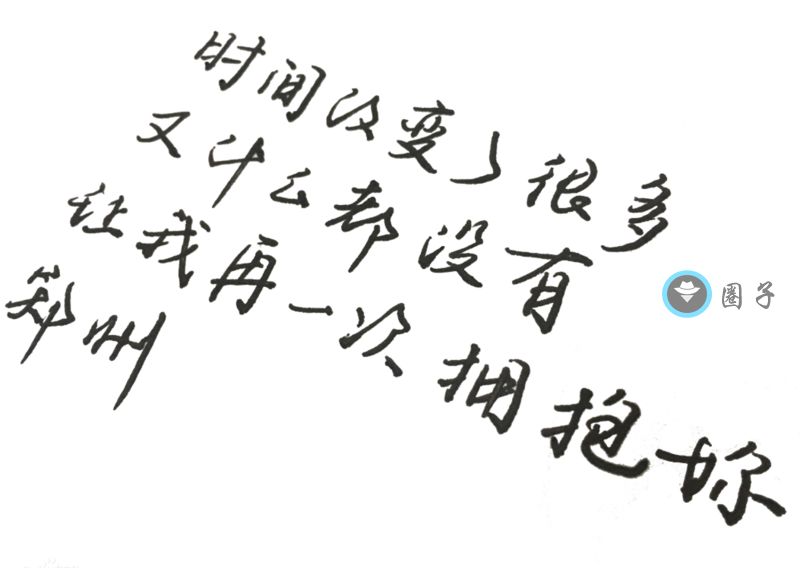 时间改变了很多
又什么都没有
让我再一次拥抱妳
郑州
圈子